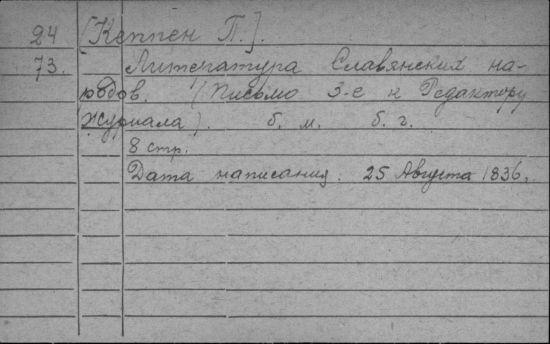 24 [Кеппен П.].
73. Литература Славянских на-
родов. (Письмо 3-е к Редактору
Журнала). б. м. б. г.
8 стр.
Дата написания: 25 Августа 1836.